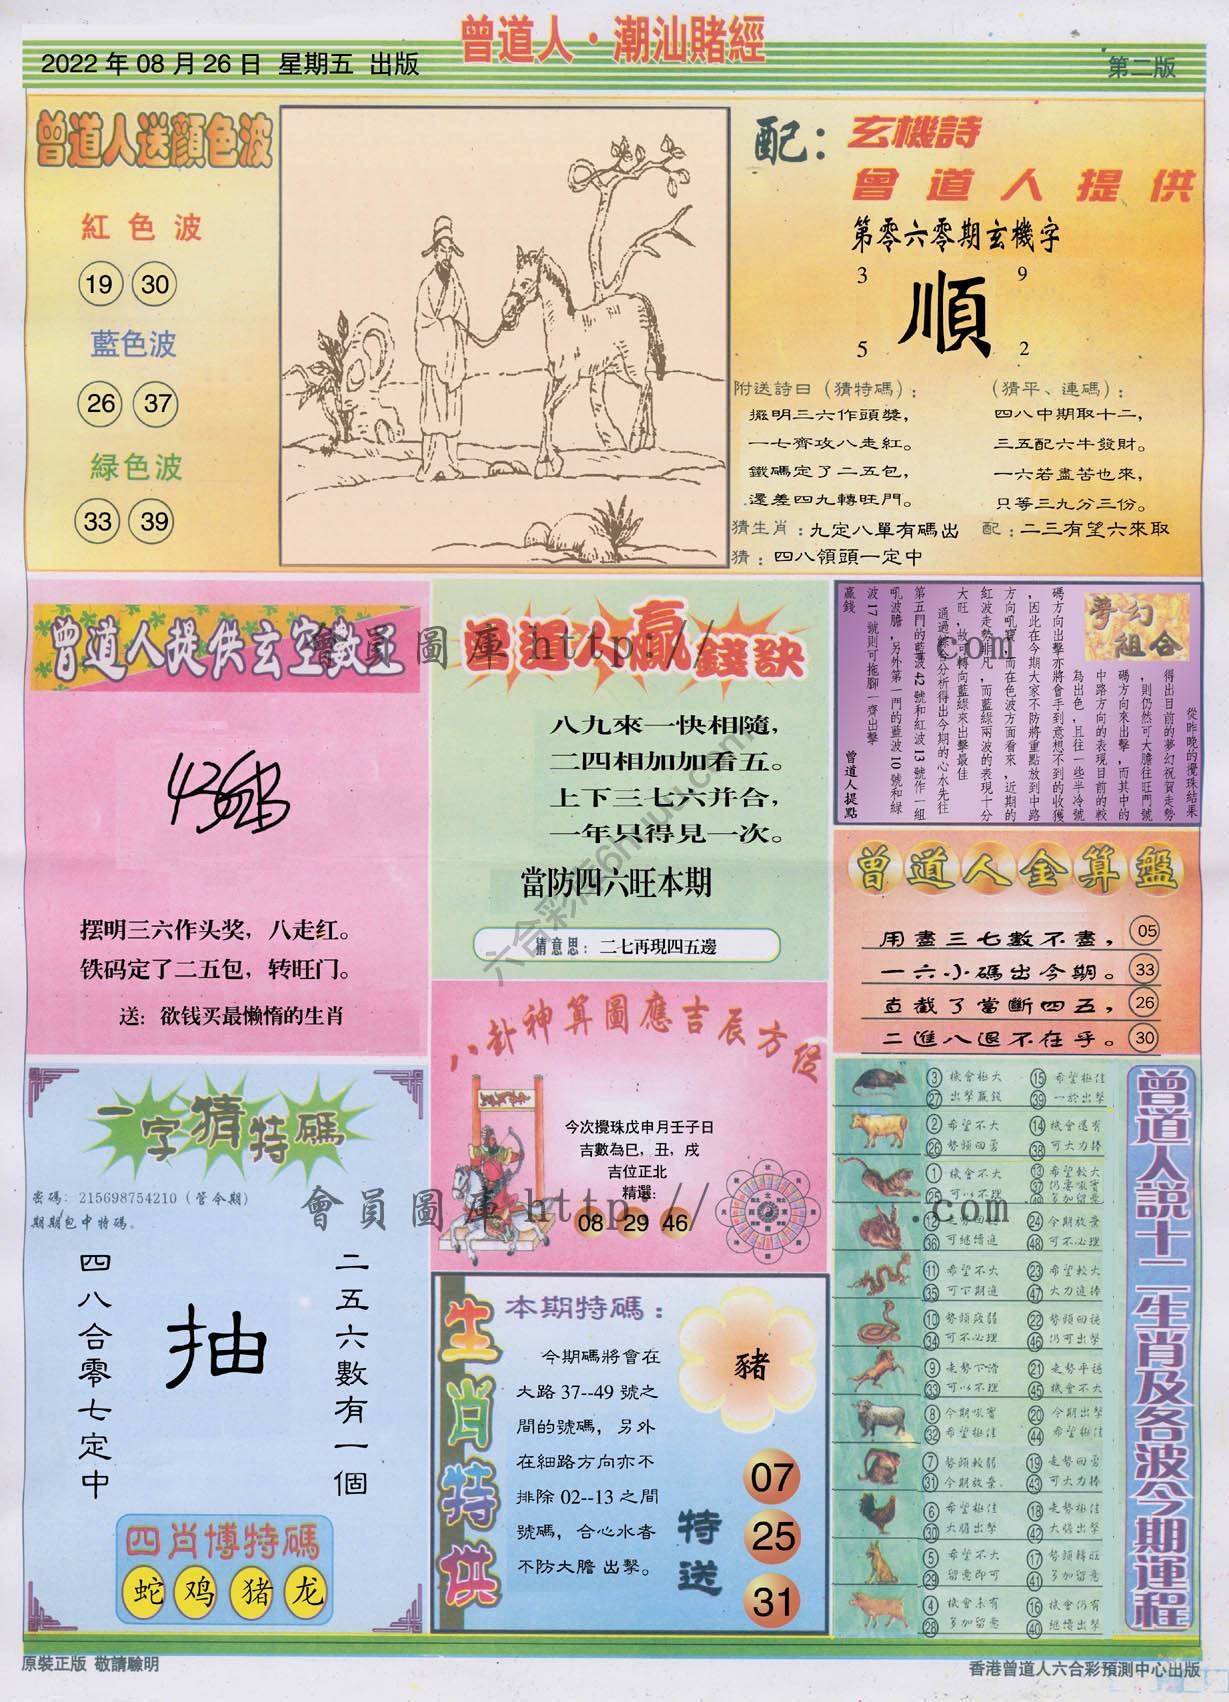 曾道人·潮汕賭經
2022 年 08 月 26 日 星期五 出版
第二版
曾道人送顏色波
紅色波
19 30
藍色波
26 37
緑色波
33 39
配：
玄機詩
曾道人提供
第零六零期玄機字
3 9
順
5 2
附送詩曰（猜特碼）：
擺明三六作頭獎，
一七齊攻八走紅。
鐵碼定了二五包，
還差四九轉旺門。
（猜平、連碼）：
四八中期取十二，
三五配六牛發財。
一六若盡苦也來，
只等三九分三份。
猜生肖：九定八單有碼出
配：二三有望六來取
猜：四八領頭一定中
曾道人提供玄空數王
摆明三六作头奖，八走红。
铁码定了二五包，转旺门。
送：欲钱买最懒惰的生肖
曾道人贏錢訣
八九來一快相隨，
二四相加加看五。
上下三七六并合，
一年只得見一次。
當防四六旺本期
猜意思：二七再現四五邊
夢幻組合
從昨晚的攪珠結果
得出目前的夢幻祝賀走勢
，則仍然可大膽往旺門號
碼方向來出擊，而其中的
中路方向的表現目前的較
為出色，且往一些半冷號
碼方向出擊亦將會手到意想不到的收獲
，因此在今期大家不防將重點放到中路
方向吼寶，而在色波方面看來，近期的
紅波走勢非凡，而藍綠兩波的表現十分
大旺，故可轉向藍綠來出擊最佳
通過綜合分析得出今期的心水先往
第五門的藍波 42 號和紅波 13 號作一組
吼波膽，另外第一門的藍波 10 號和綠
波 17 號則可拖腳一齊出擊
贏錢
曾道人提點
曾道人金算盤
用盡三七數不盡， 05
一六小碼出今期。 33
直截了當斷四五， 26
二進八退不在乎。 30
一字猜特碼
密碼：215698754210（管今期）
期期包中特碼。
四八合零七定中
抽
二五六數有一個
四肖博特碼
蛇 鸡 猪 龙
八卦神算圖應吉辰方位
今次攪珠戊申月壬子日
吉數為巳，丑，戌
吉位正北
精選：
08 29 46
生肖特供
本期特碼：
今期碼將會在
大路 37--49 號之
間的號碼，另外
在細路方向亦不
排除 02--13 之間
號碼，合心水者
不防大膽 出擊。
豬
特送
07
25
31
曾道人説十二生肖及各波今期運程
3 機會極大 15 希望極佳
27 出擊贏錢 39 一於出擊
2 希望不大 14 機會還有
26 勢頭回勇 38 可大力捧
1 機會不大 13 希望較大
25 可以不理 37 仍要吼實
49 多加留意
12 走勢回 24 今期放棄
36 可繼續進 48 可不必理
11 希望不大 23 希望較大
35 可下期進 47 大力進捧
10 勢頭段弱 22 勢頭回穩
34 可不必理 46 仍可出擊
9 走勢下滑 21 走勢平穩
33 可以不理 45 機會不大
8 今期吼實 20 今期出擊
32 希望極佳 44 希望極佳
7 勢頭較弱 19 走勢回勇
31 今期放棄、 43 可大力捧
6 希望極佳 18 走勢極佳
30 大膽出擊 42 大膽出擊
5 希望不大 17 勢頭轉旺
29 留意即可 41 多加留意
4 機會未有 16 機會仍有
28 多加留意 40 繼續出擊
會員圖庫 http:// .com
會員圖庫 http:// .com
原裝正版 敬請驗明
香港曾道人六合彩預測中心出版